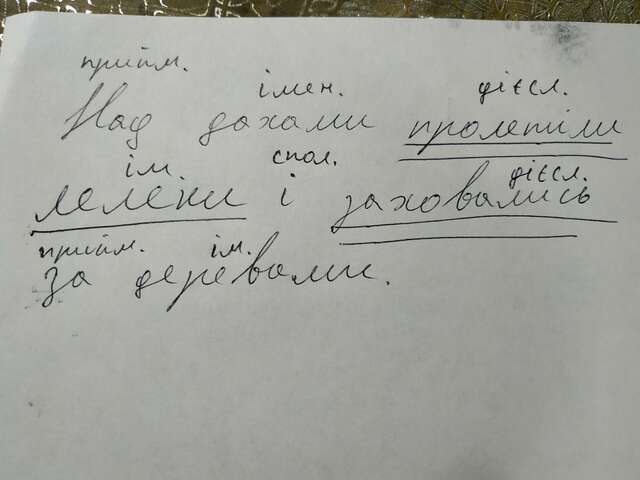 прийм. імен. дієсл.
Над дахами пролетіли
ім. спол. дієсл.
лелеки і заховались
прийм. ім.
за деревами.